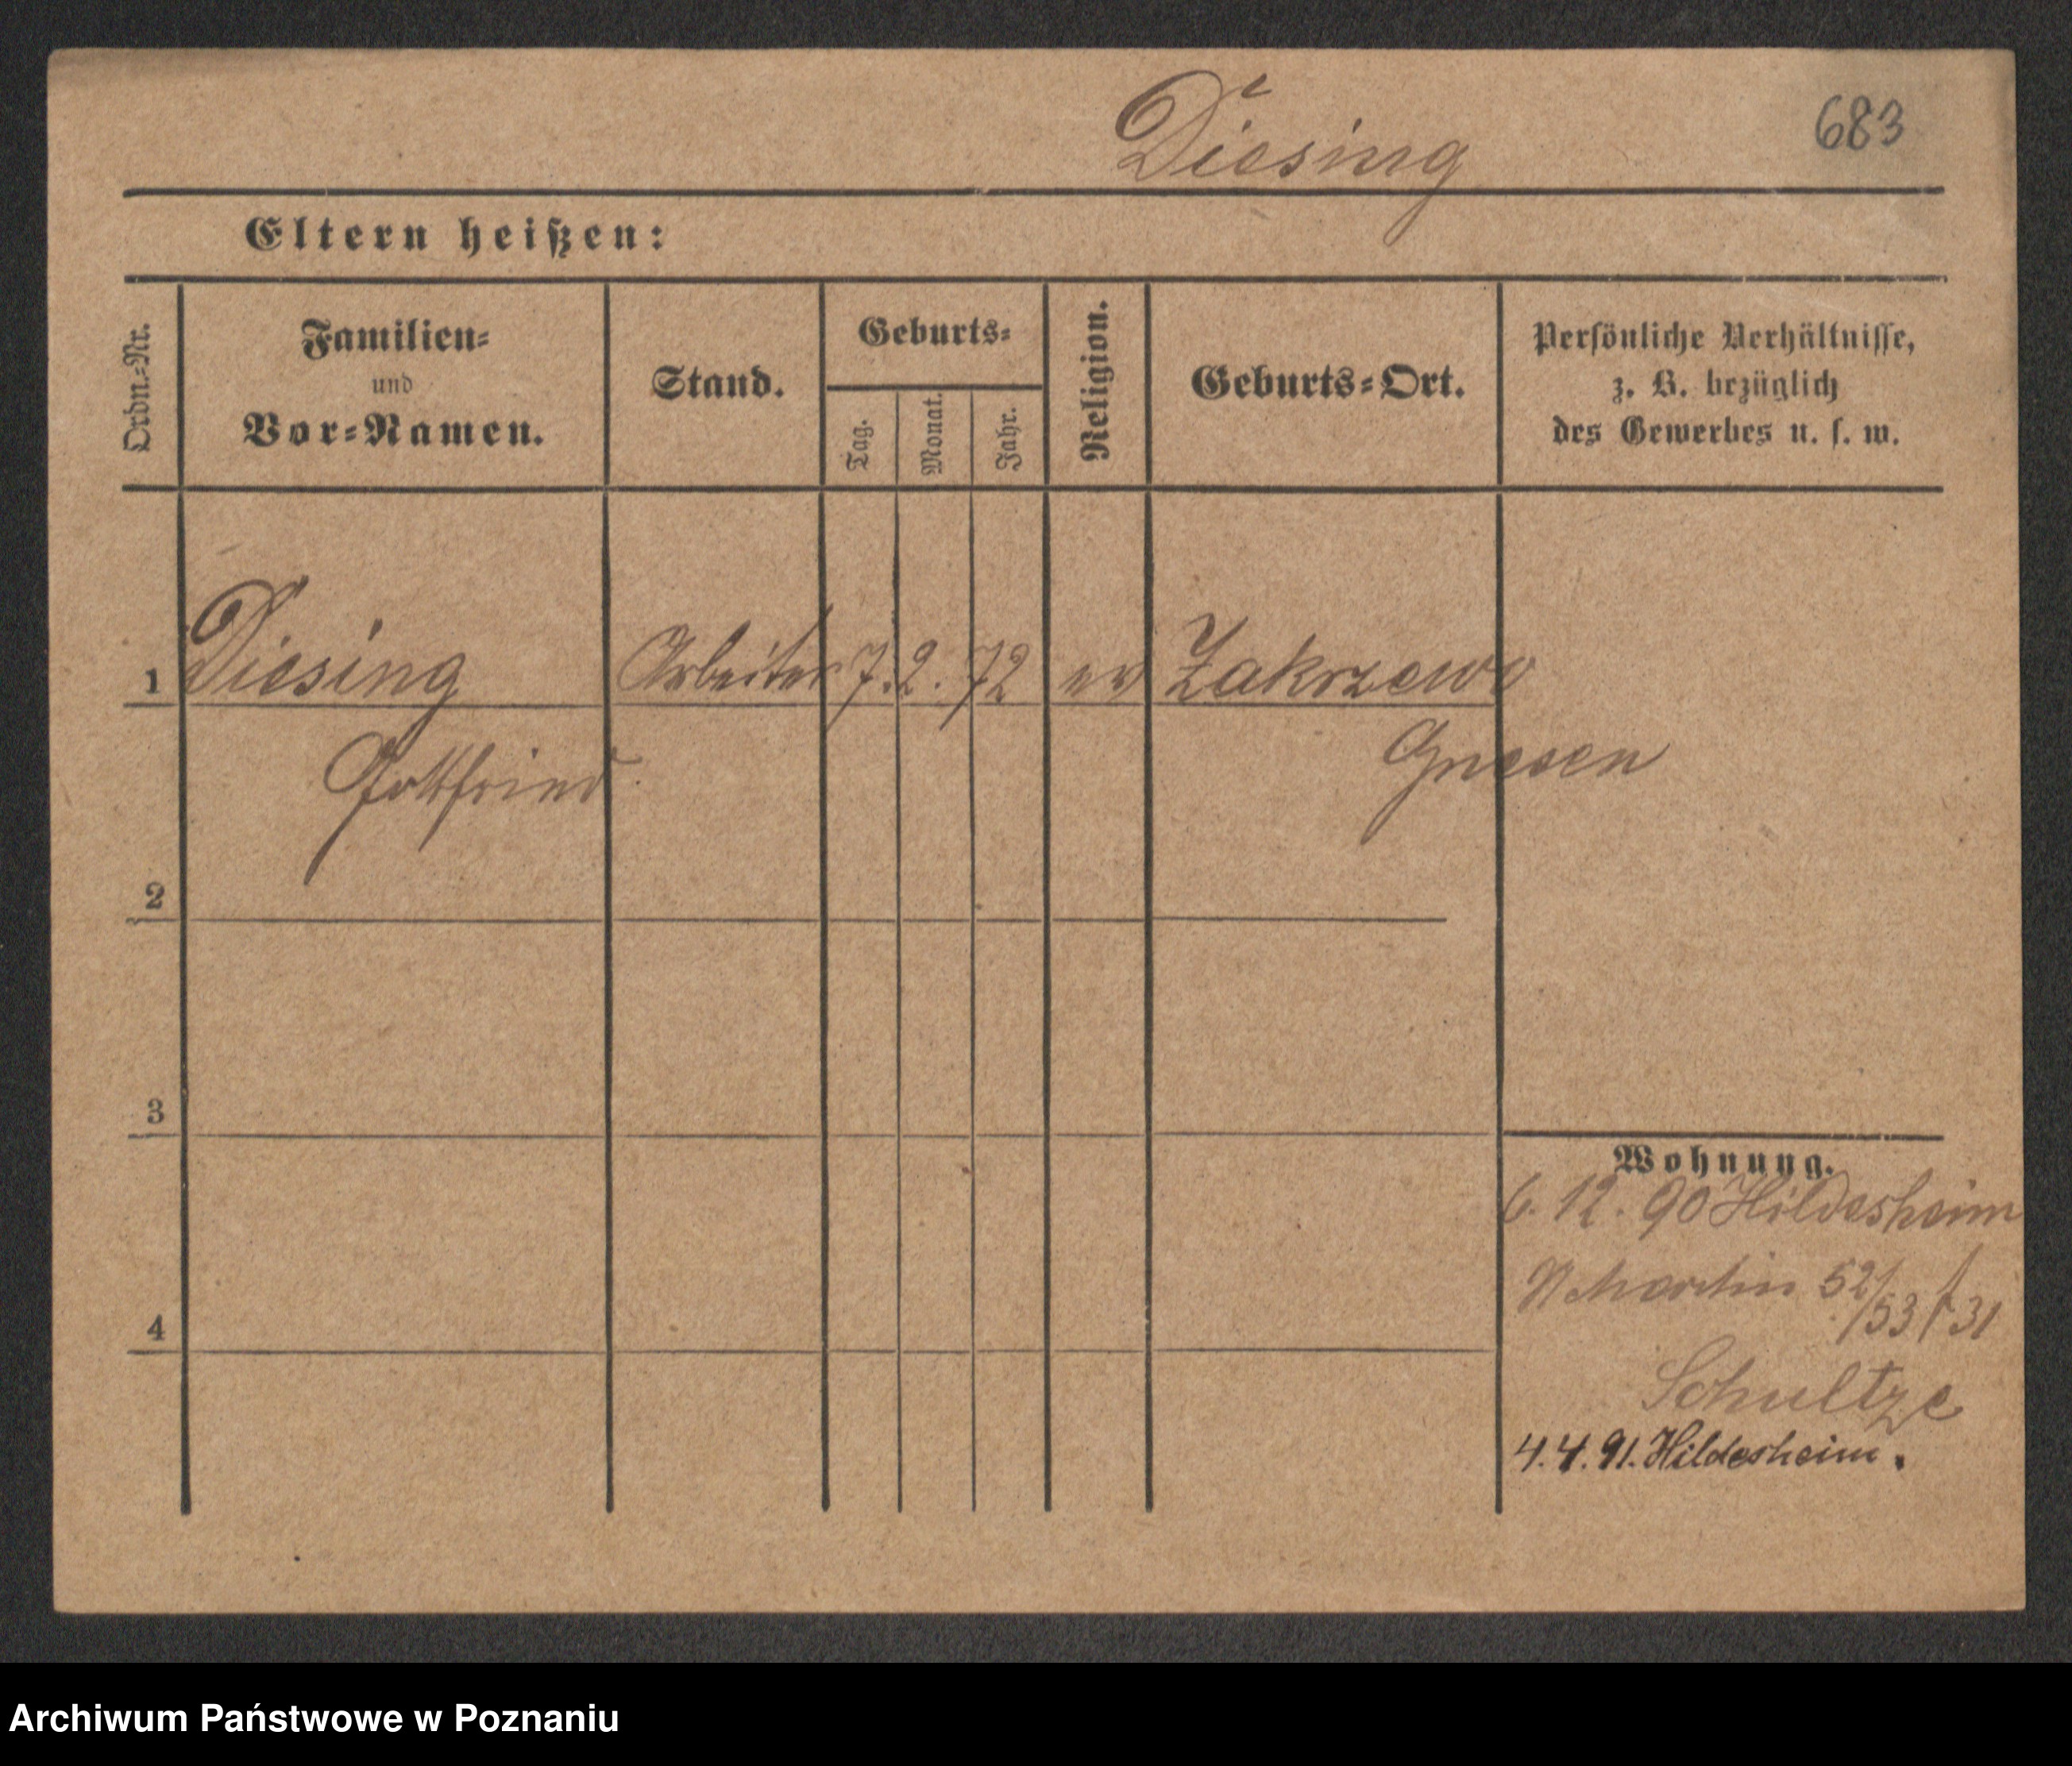 Diesing
683
Eltern heißen:
Ordn.-Nr.
Familien-
und
Vor-Namen.
Stand.
Geburts-
Tag.
Monat.
Jahr.
Religion.
Geburts-Ort.
Persönliche Verhältnisse,
z. B. bezüglich
des Gewerbes u. s. w.
1 Diesing Arbeiter 7. 2. 72 ev Zakrzewo
Gottfried Gnesen
2
3
Wohnung.
6. 12. 90 Hildesheim
Martin 52/53 31
4
Schultze
4. 4. 91. Hildesheim.
Archiwum Państwowe w Poznaniu